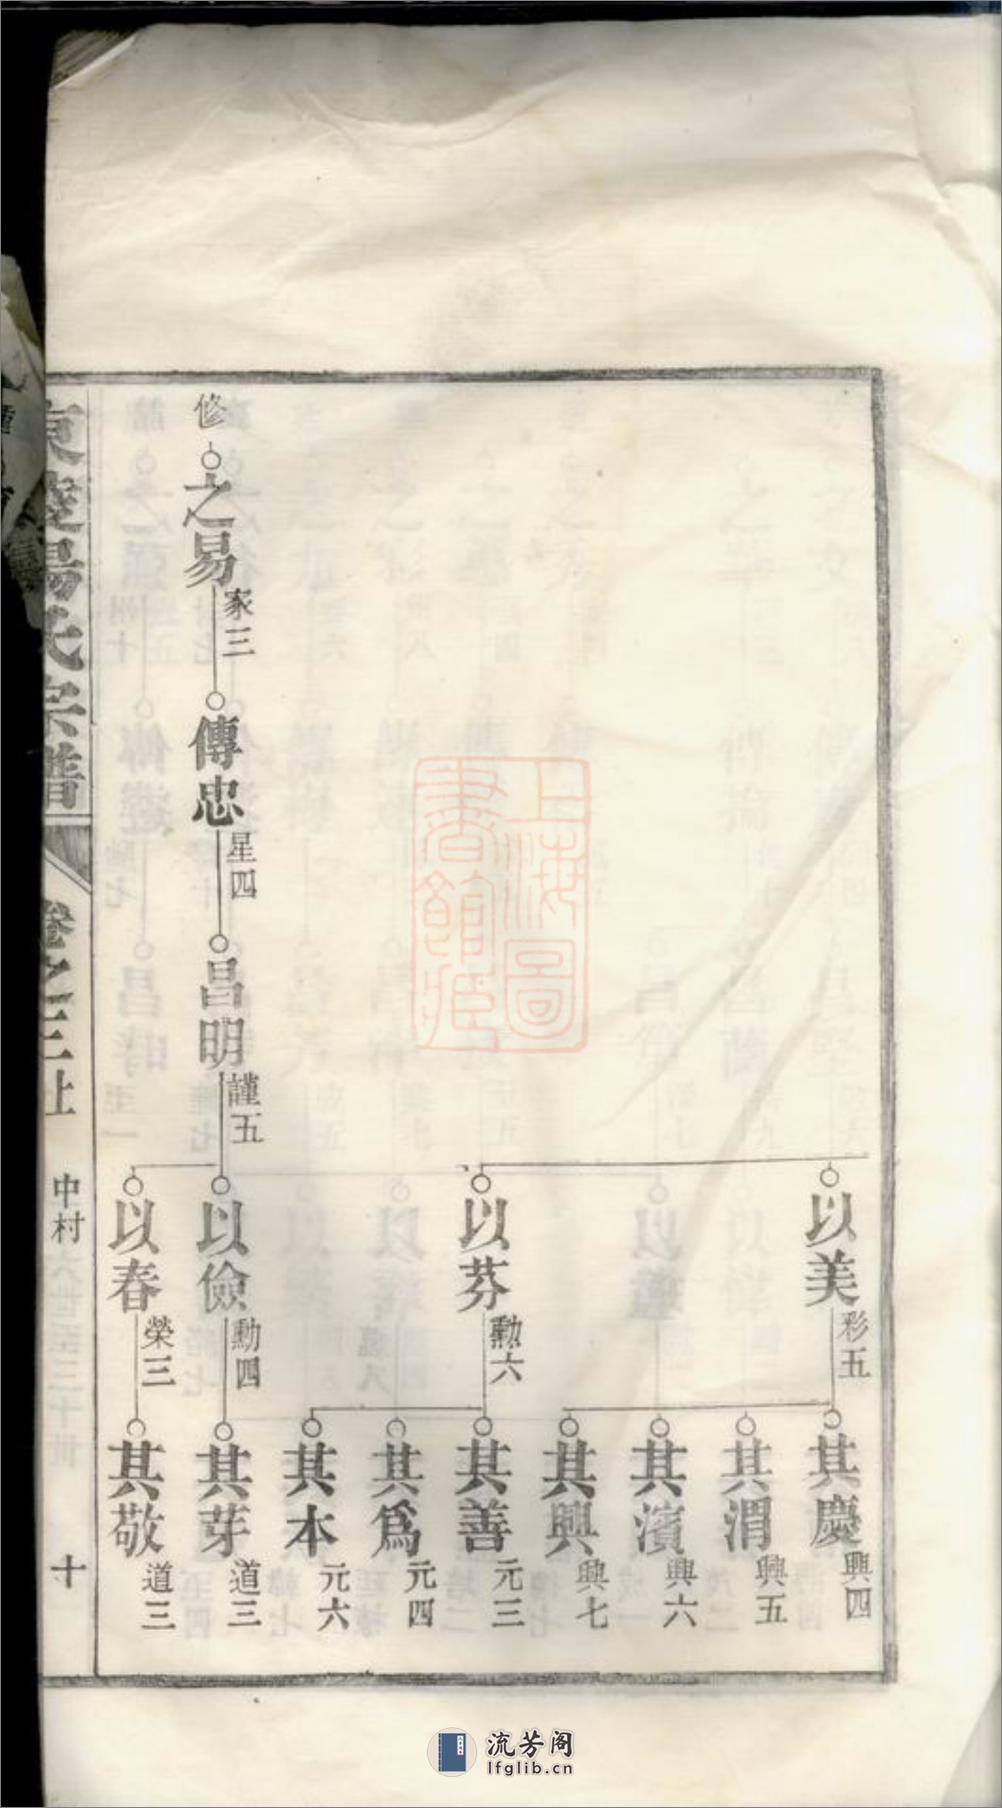 以美
彩五
以芬
勳六
其慶
興四
其渭
興五
其濱
興六
其興
興七
其善
元三
其為
元四
其本
元六
修
之易
家三
傳忠
星四
昌明
謹五
以儉
勳四
其芽
道三
以春
榮三
其敬
道三
氏宗譜
卷之三上
中村
十
上海圖
書館藏
流芳阁
lfglib.cn